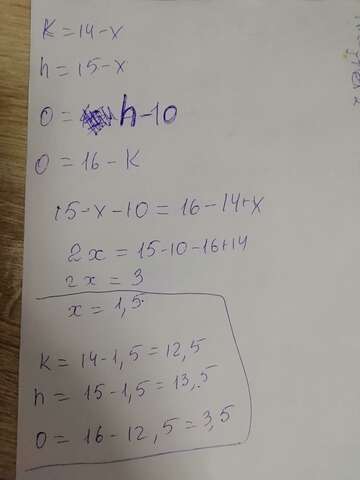 K = 14 - x
h = 15 - x
O = h - 10
O = 16 - K
15 - x - 10 = 16 - 14 + x
2x = 15 - 10 - 16 + 14
2x = 3
x = 1,5
K = 14 - 1,5 = 12,5
h = 15 - 1,5 = 13,5
O = 16 - 12,5 = 3,5